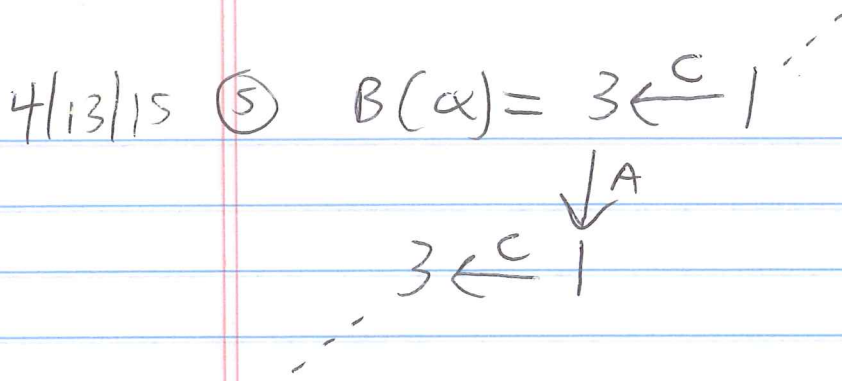 4/13/15 ⑤ B(α) = 3 ←C 1
↓ A
3 ←C 1